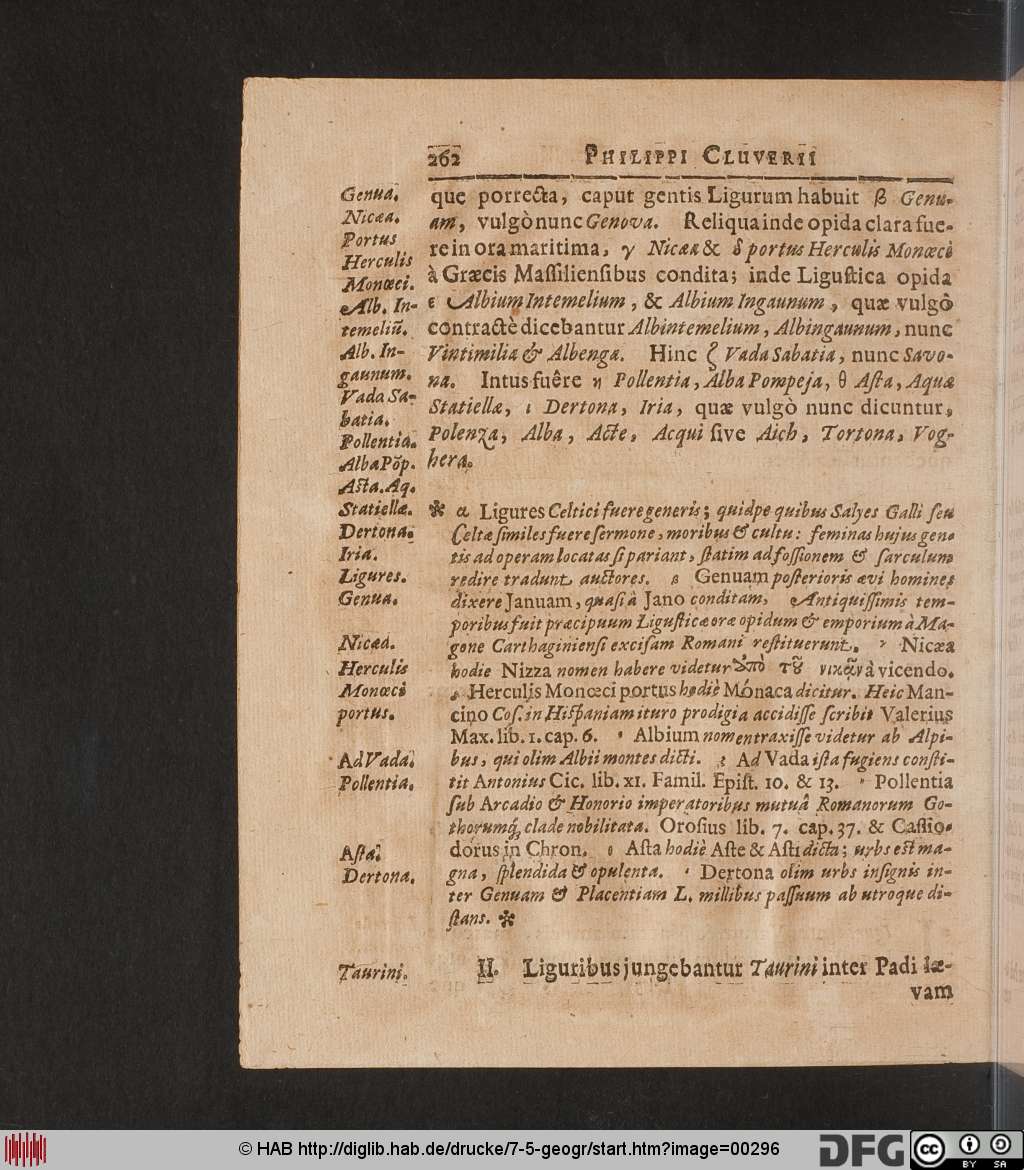 262 PHILIPPI CLUVERII
Genua.
Nicæa.
Portus
Herculis
Monœci.
Alb. In-
temeliũ.
Alb. In-
gaunum.
Vada Sa-
batia.
Pollentia.
Alba Põp.
Asta. Aq.
Statiellæ.
Dertona.
Iria.
Ligures.
Genua.
Nicæa.
Herculis
Monœci
portus.
Ad Vada.
Pollentia.
Asta.
Dertona.
Taurini.
que porrecta, caput gentis Ligurum habuit β Genu-
am, vulgò nunc Genova. Reliqua inde opida clara fue-
re in ora maritima, γ Nicæa & δ portus Herculis Monœci
à Græcis Maſſilienſibus condita; inde Liguſtica opida
ε Albium Intemelium, & Albium Ingaunum, quæ vulgò
contractè dicebantur Albintemelium, Albingaunum, nunc
Vintimilia & Albenga. Hinc ζ Vada Sabatia, nunc Savo-
na. Intus fuêre η Pollentia, Alba Pompeja, θ Aſta, Aquæ
Statiellæ, ι Dertona, Iria, quæ vulgò nunc dicuntur,
Polenza, Alba, Aſte, Acqui ſive Aich, Tortona, Vog-
hera.
* α Ligures Celtici fuere generis; quidpe quibus Salyes Galli ſeu
Celtæ ſimiles fuere ſermone, moribus & cultu: feminas hujus gen-
tis ad operam locatas ſi pariant, ſtatim ad foſſionem & ſarculum
redire tradunt auctores. β Genuam poſterioris ævi homines
dixere Januam, quaſi à Jano conditam, Antiquiſſimis tem-
poribus fuit præcipuum Liguſticæ oræ opidum & emporium à Ma-
gone Carthaginienſi exciſam Romani reſtituerunt. γ Nicæa
hodie Nizza nomen habere videtur ἀπὸ τοῦ νικᾷν à vicendo.
δ Herculis Monœci portus hodiè Mónaca dicitur. Heic Man-
cino Coſ. in Hiſpaniam ituro prodigia accidiſſe ſcribit Valerius
Max. lib. 1. cap. 6. ε Albium nomen traxiſſe videtur ab Alpi-
bus, qui olim Albii montes dicti. ζ Ad Vada iſta fugiens conſti-
tit Antonius Cic. lib. XI. Famil. Epiſt. 10. & 13. η Pollentia
ſub Arcadio & Honorio imperatoribus mutuâ Romanorum Go-
thorumq́; clade nobilitata. Oroſius lib. 7. cap. 37. & Caſſio-
dorus in Chron. θ Aſta hodiè Aſte & Aſti dicta; urbs est ma-
gna, ſplendida & opulenta. ι Dertona olim urbs inſignis in-
ter Genuam & Placentiam L. millibus paſſuum ab utroque di-
ſtans. *
II. Liguribus jungebantur Taurini inter Padi læ-
vam
© HAB http://diglib.hab.de/drucke/7-5-geogr/start.htm?image=00296
DFG
cc BY SA